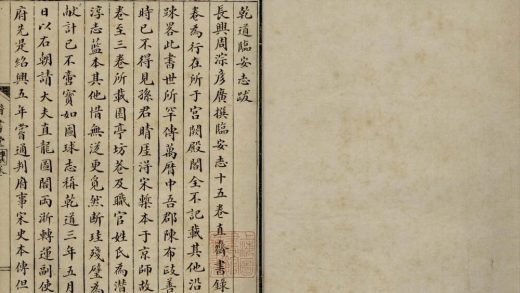 乾道臨安志跋
長興周淙彥廣撰臨安志十五卷直齋書錄
卷為行在所于宮闕殿閣全不記載其他沿
踈畧此書世所罕傳萬曆中吾郡陳布政善
時已不得見孫君晴厓得宋槧本于京師故
卷至三卷所載園亭坊巷及職官姓氏為潛
淳志藍本其他惜無從更覓然斷珪殘璧為
献計已不啻寳如圖球志稱乾道三年五月
日以右朝請大夫直龍圖閣兩浙轉運副使
府先是紹興五年嘗通判府事宋史本傳但